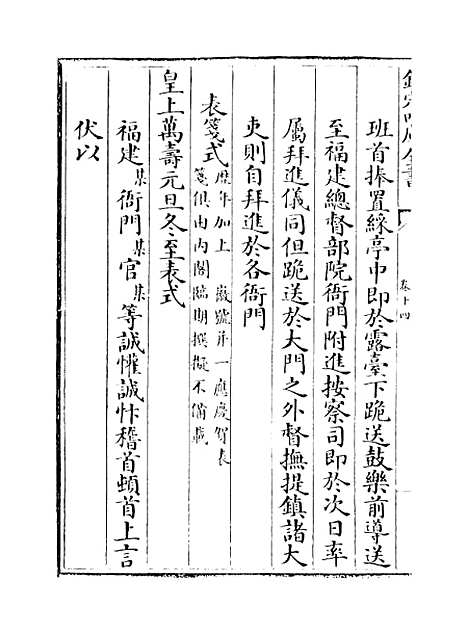 欽定四庫全書
卷十四
班首捧置綵亭中即於露臺下跪送鼓樂前導送
至福建總督部院衙門附進按察司即於次日率
屬拜進儀同但跪送於大門之外督撫提鎮諸大
吏則自拜進於各衙門
表箋式歷年加上 徽號并一應慶賀表
箋俱由内閣臨期撰擬不備載
皇上萬壽元旦冬至表式
福建某衙門某官某等誠懽誠忭稽首頓首上言
伏以